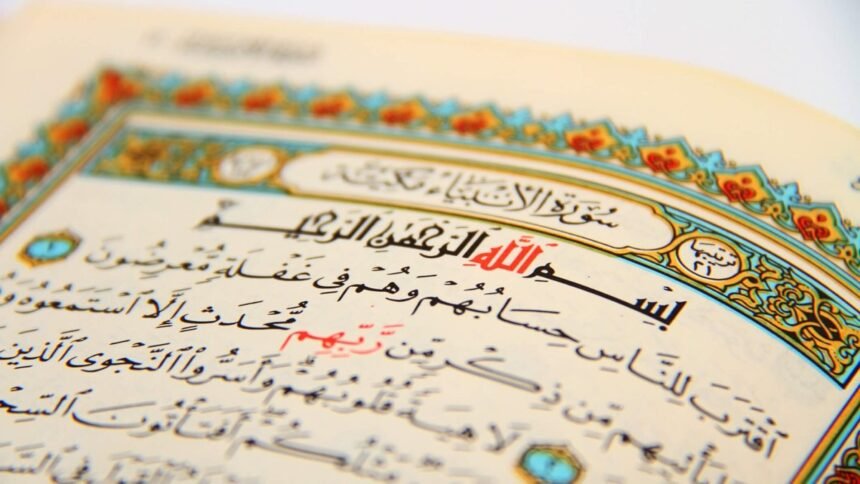 سُورَةُ الْأَنْبِيَاءِ مَكِّيَّة
ترتيبها ٢١
بِسْمِ اللَّهِ الرَّحْمَٰنِ الرَّحِيمِ
ٱقْتَرَبَ لِلنَّاسِ حِسَابُهُمْ وَهُمْ فِي غَفْلَةٍ مُّعْرِضُونَ ١
يَأْتِيهِم مِّن ذِكْرٍ مِّن رَّبِّهِم مُّحْدَثٍ إِلَّا ٱسْتَمَعُوهُ
٢ لَاهِيَةً قُلُوبُهُمْ وَأَسَرُّوا۟ ٱلنَّجْوَى ٱلَّذِينَ
مِّثْلُكُمْ أَفَتَأْتُونَ ٱلسِّحْ
ٱلْقَوْلَ فِي ٱلسَّ